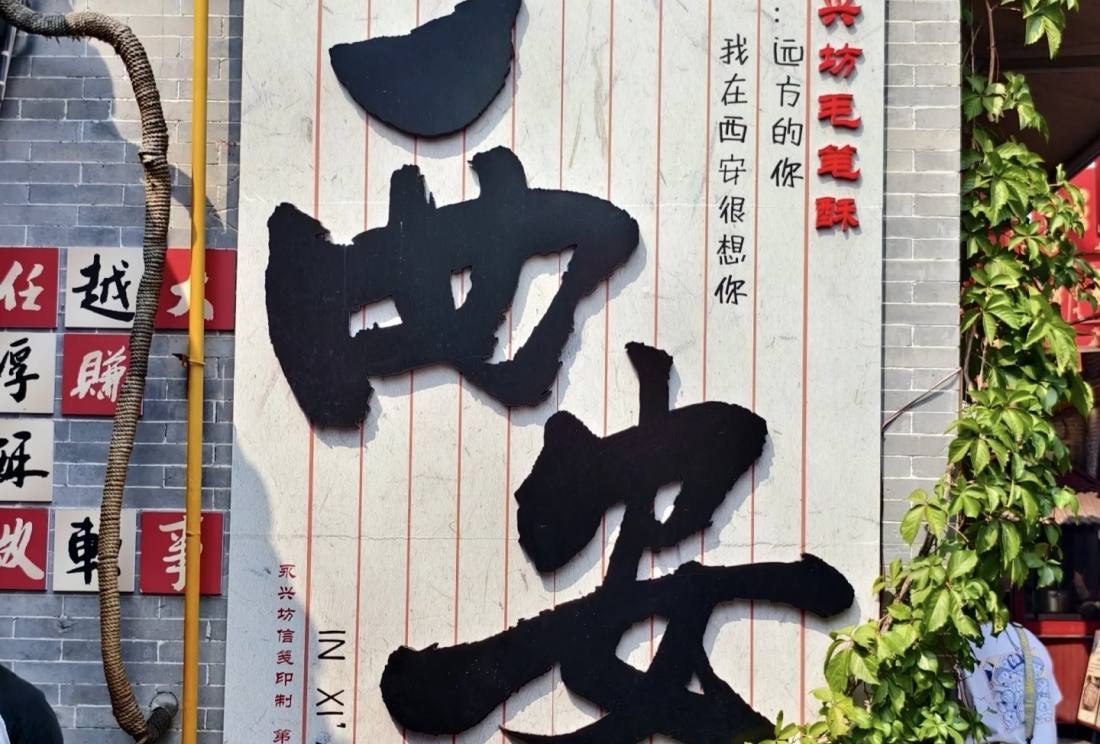 兴坊毛笔酥
远方的你
我在西安很想你
西安
IN XI'
永兴坊信笺印制 第
任越大
厚賺
酥
事